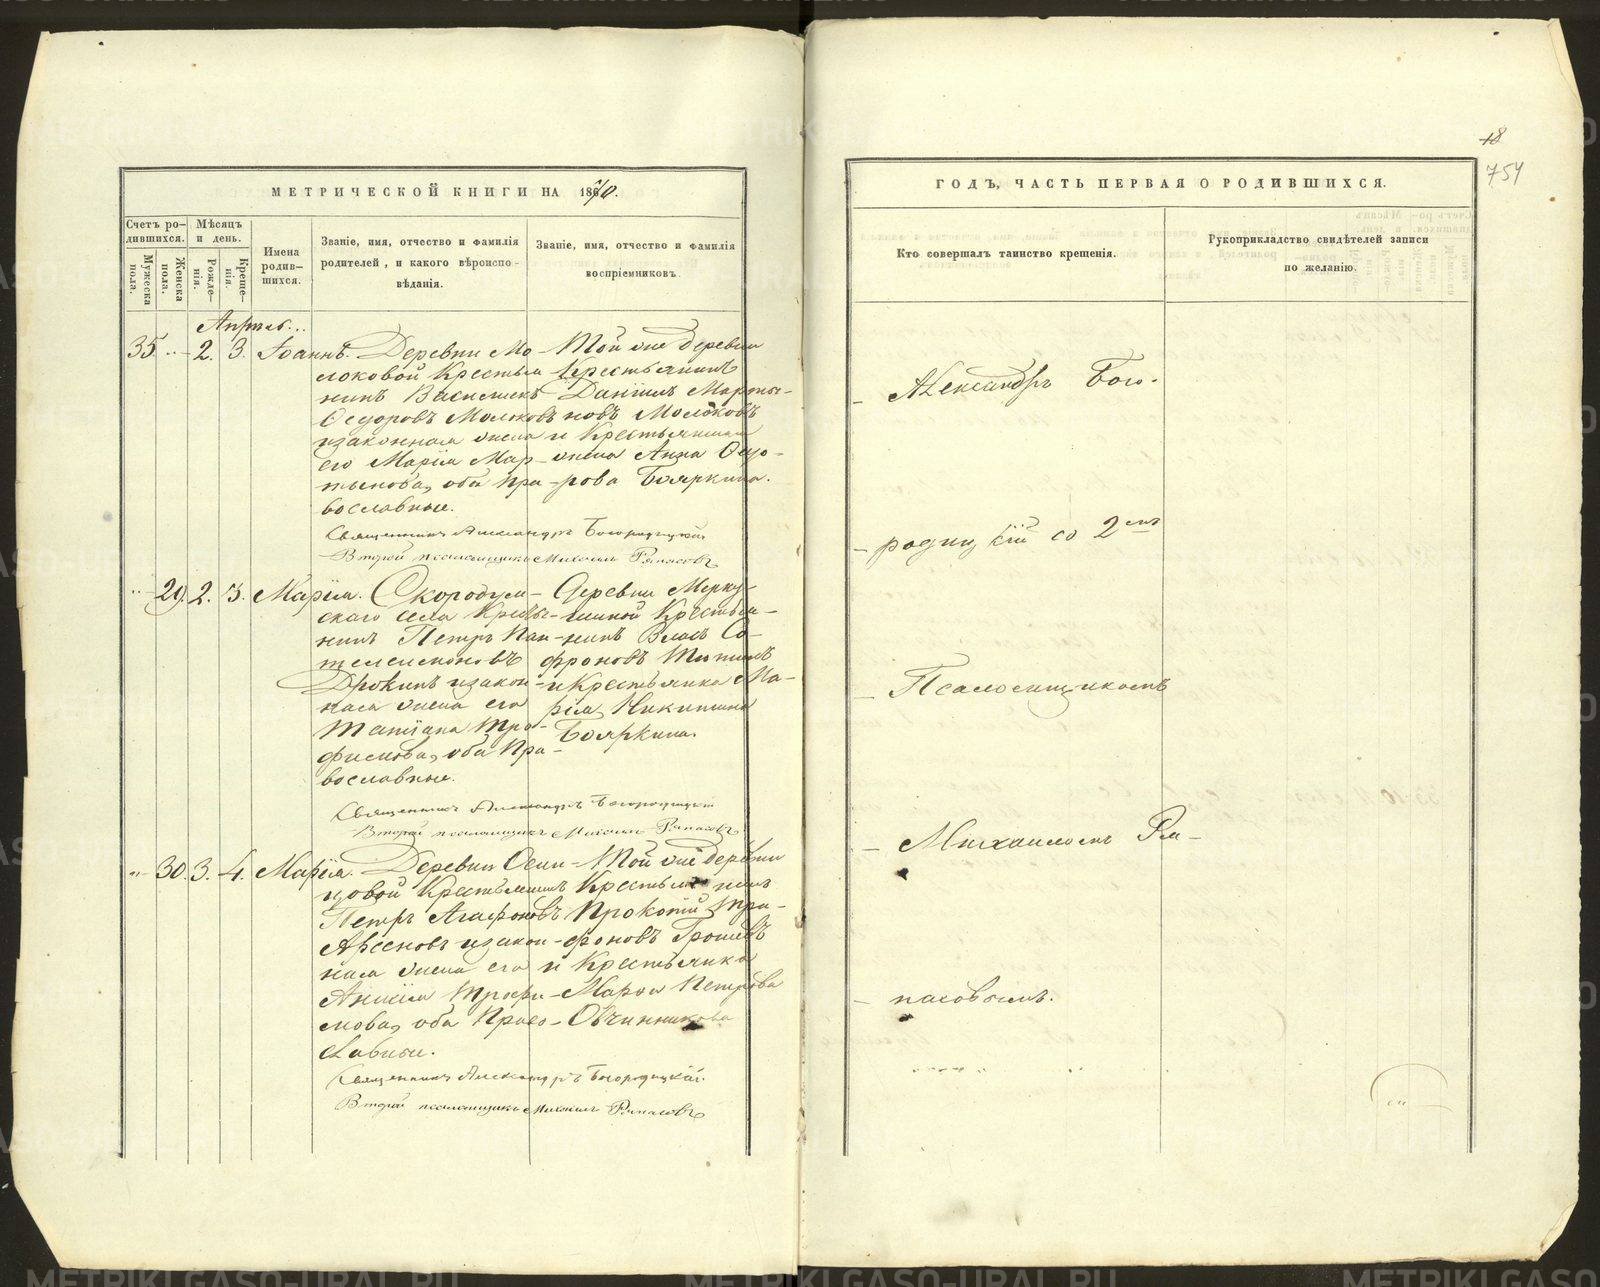 МЕТРИЧЕСКОЙ КНИГИ НА 1870.
Счетъ ро-
дившихся.
Мужеска
пола.
Женска
пола.
Мѣсяцъ
и день.
Рожде-
нія.
Креще-
нія.
Имена
родив-
шихся.
Званіе, имя, отчество и фамилія
родителей, и какого вѣроиспо-
вѣданія.
Званіе, имя, отчество и фамилія
воспріемниковъ.
Апрѣль...
35. 2. 3. Іоаннъ.
Деревни Мо-
локовой Крестья
нинъ Василискъ
Ѳедоровъ Молоковъ
изаконная жена
его Марія Мар-
тынова, оба пра-
вославные.
Той же деревни
Крестьянинъ
Даніилъ Марты-
новъ Молоковъ
и Крестьянская
жена Анна Ѳедо-
рова Бояркина.
Священникъ Александръ Богородицкій
Второй псаломщикъ Михаилъ Ряпасовъ
29. 2. 3. Марія.
Скородум-
скаго села Кресть-
нинъ Петръ Пан-
телеимоновъ
Дрокинъ изакон-
ная жена его
Татіана Тро-
фимова, оба пра-
вославные.
Деревни Мерку-
шиной Крестья-
нинъ Власъ Со-
фроновъ
и Крестьянка Ма-
рія Никитина
Бояркина.
Священникъ Александръ Богородицкій
Второй псаломщикъ Михаилъ Ряпасовъ
30. 3. 4. Марія.
Деревни Осин-
цовой Крестьянинъ
Петръ Агафоновъ
Арсеновъ изакон-
ная жена его
Анисія Трофи-
мова, оба Право-
славные.
Той же деревни
Крестьянинъ
Прокопій Три-
фоновъ Грошевъ
и Крестьянка
Марѳа Петрова
Овчинникова
Священникъ Александръ Богородицкій.
Второй псаломщикъ Михаилъ Ряпасовъ
18
754
ГОДЪ, ЧАСТЬ ПЕРВАЯ О РОДИВШИХСЯ.
Кто совершалъ таинство крещенія.
Рукоприкладство свидѣтелей записи
по желанію.
Александръ Бого-
родицкій со 2емъ
Псаломщикомъ
Михаиломъ Ря-
пасовымъ.
METRIKI.GASO-URAL.RU